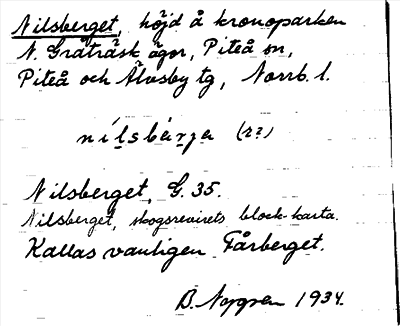 Nilsberget, höjd å kronoparken
N. Gråträsk ägor, Piteå sn,
Piteå och Älvsby tg, Norrb. l.
nílsbærja (r?)
Nilsberget, G. 35.
Nilsberget, skogsrevirets block-karta.
Kallas vanligen Fårberget.
B. Nygren 1934.